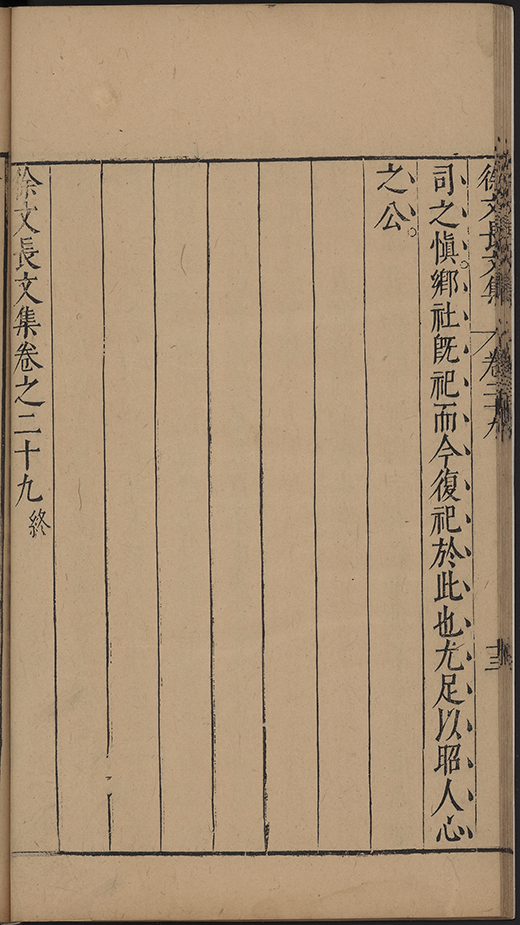 徐文長文集 卷二十九 十三
司之愼。鄉社旣祀而今復祀於此也尤足以昭人心
之公。
徐文長文集卷之二十九 終